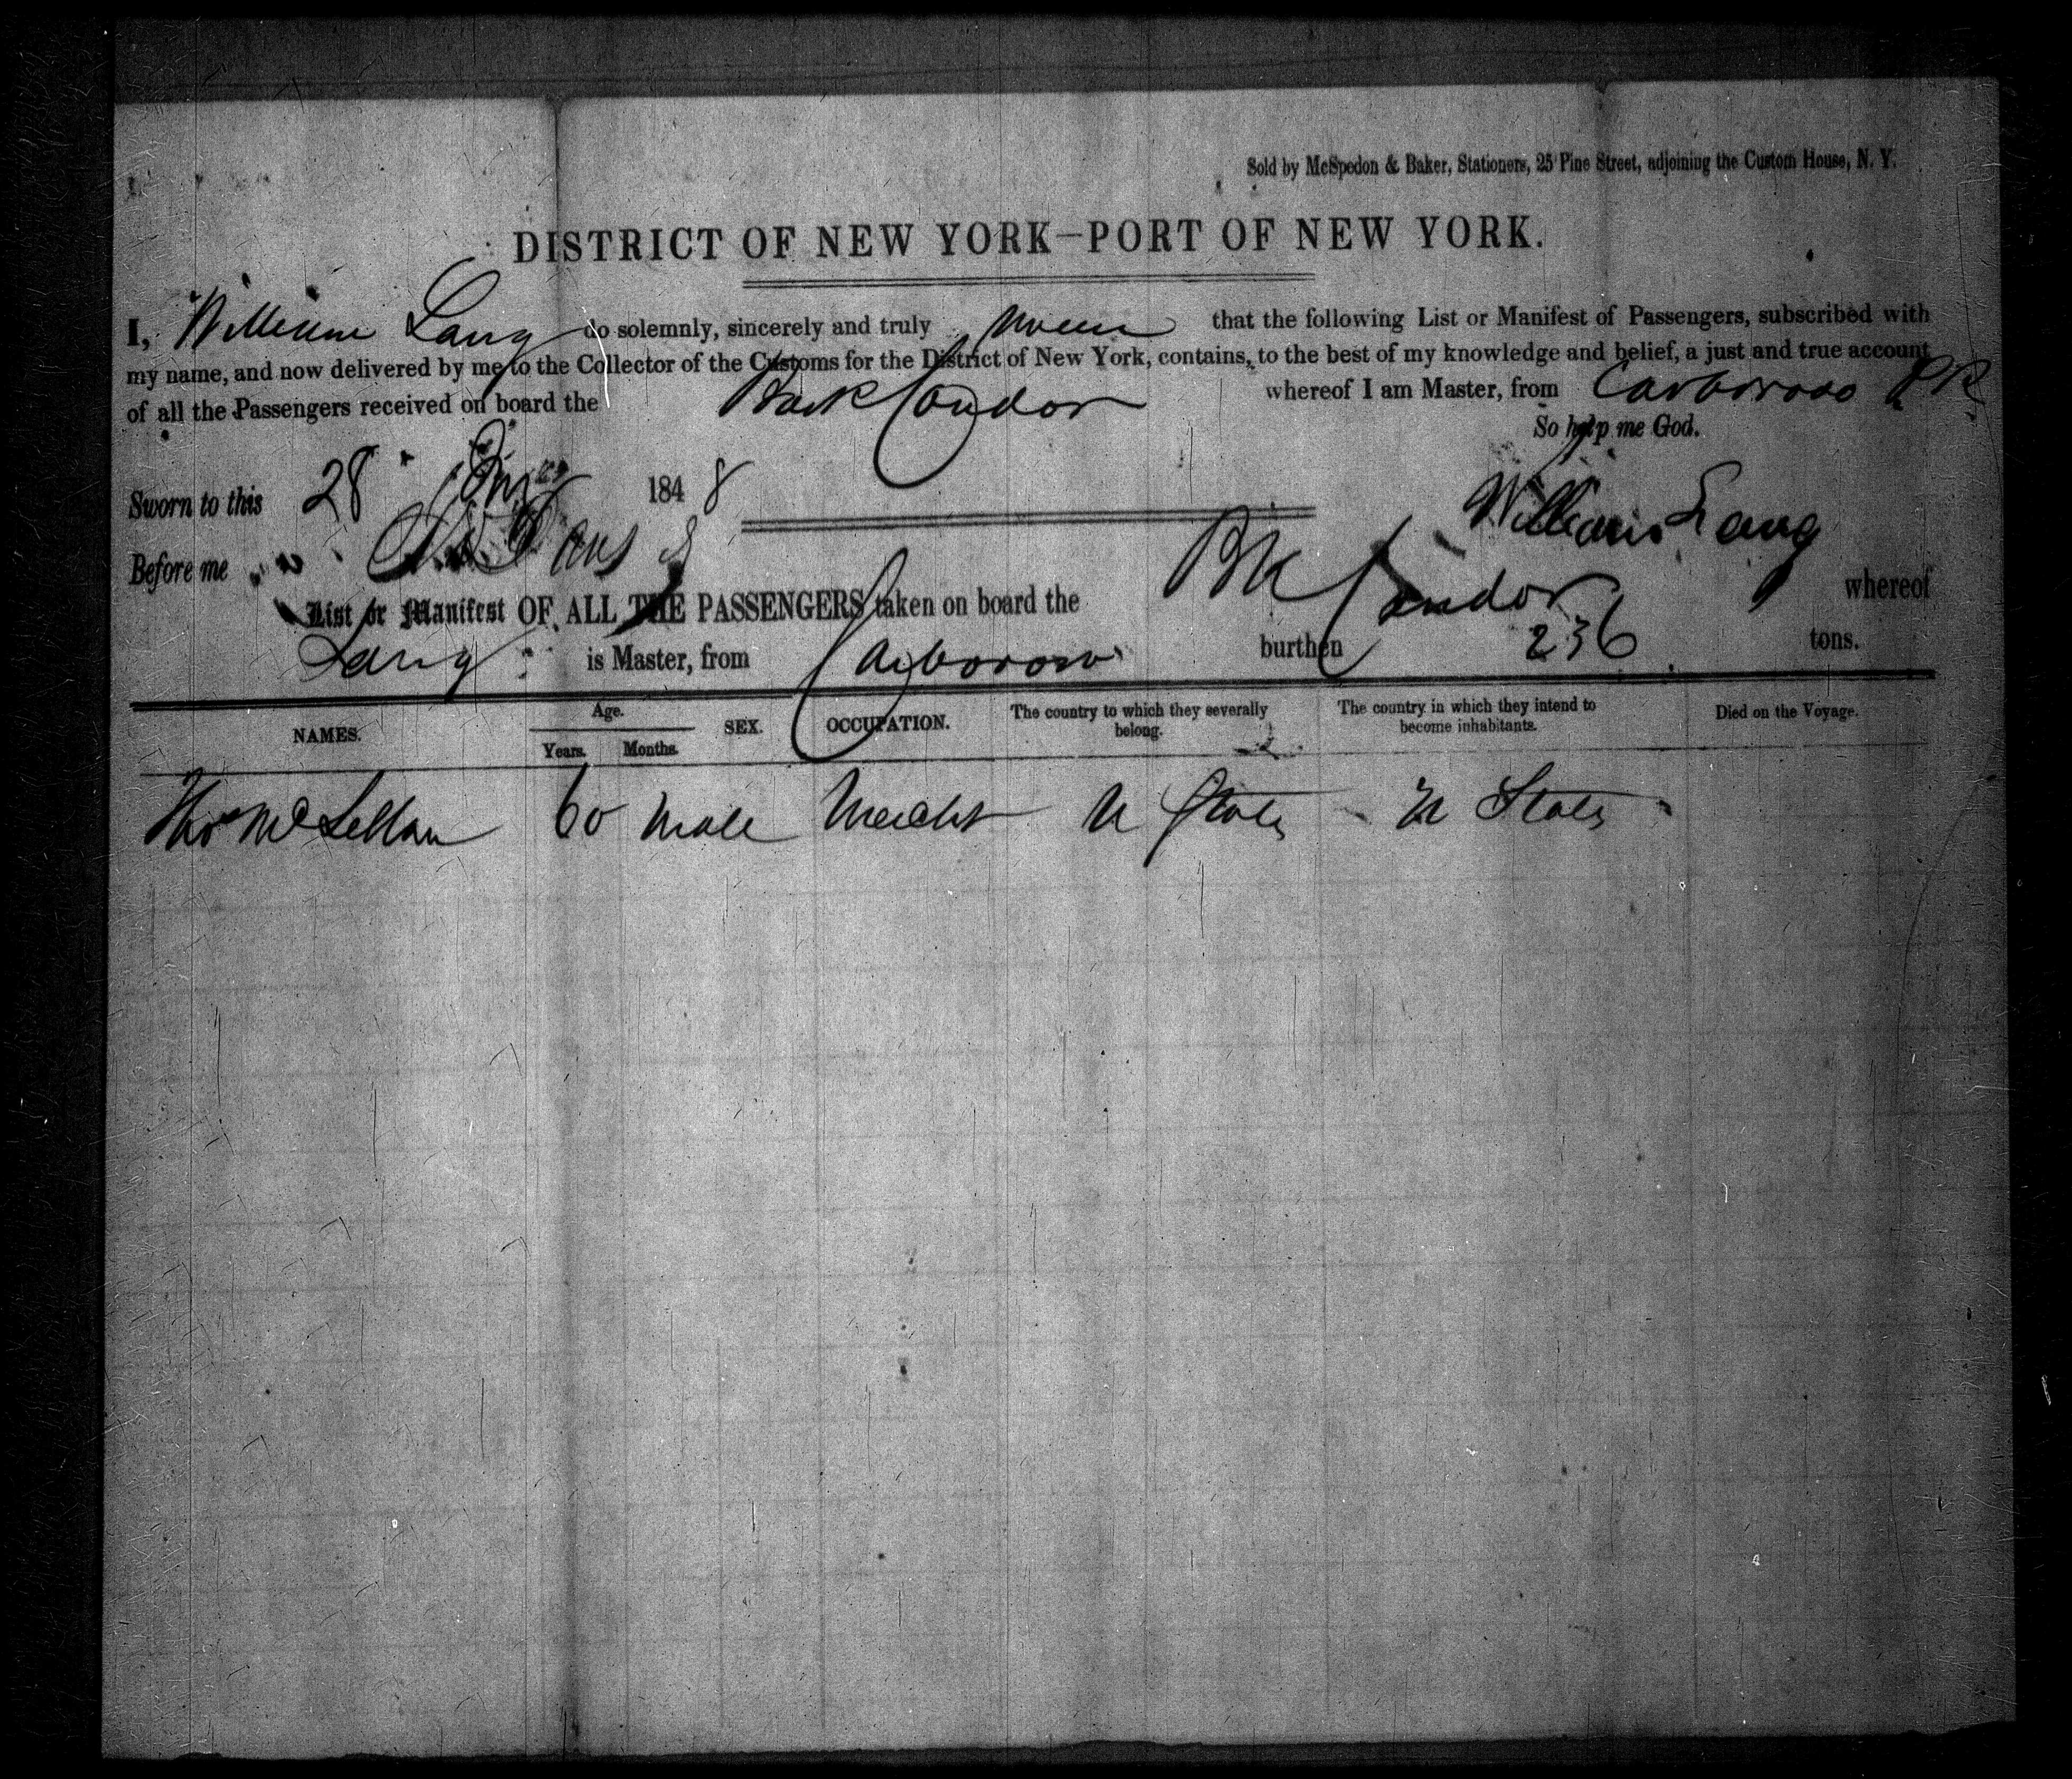 Sold by McSpedon & Baker, Stationers, 25 Pine Street, adjoining the Custom House, N. Y.
DISTRICT OF NEW YORK—PORT OF NEW YORK.
I, William Lang do solemnly, sincerely and truly swear that the following List or Manifest of Passengers, subscribed with
my name, and now delivered by me to the Collector of the Customs for the District of New York, contains, to the best of my knowledge and belief, a just and true account
of all the Passengers received on board the Bark Condor whereof I am Master, from Carboroso PR
So help me God.
Sworn to this 28 1848 William Lang
Before me
List or Manifest OF ALL THE PASSENGERS taken on board the Bk Condor whereof
Lang is Master, from burthen 236 tons.
NAMES. Age. Years. Months. SEX. OCCUPATION. The country to which they severally belong. The country in which they intend to become inhabitants. Died on the Voyage.
Thos McLellan 60 Male Mercht U States U States